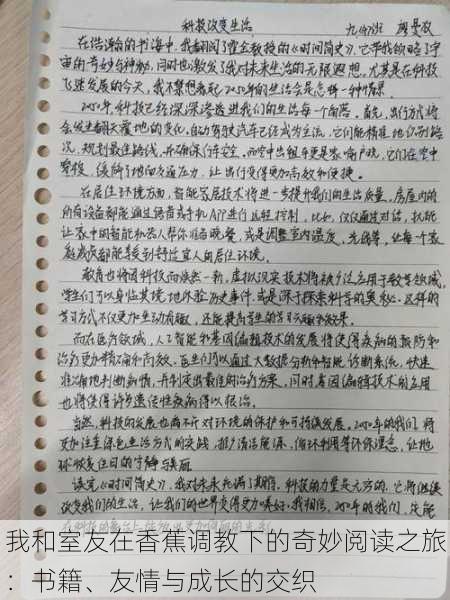 科技改变生活 九(4)班
在浩瀚的书海中,我翻阅了霍金教授的《时间简史》,它带我领略了宇
宙的奇妙与神秘,同时也激发了我对未来生活的无限遐想。尤其是在科技
飞速发展的今天,我不禁想看起2050年的生活会是怎样一种情景
2050年,科技已经深深渗透进我们的生活每一个角落。首先,出行方式将
会发生翻天覆地的变化,自动驾驶汽车已经成为主流,它们能精准地识别路
况,规划最佳路线,并确保行车安全。而空中出租车更是家喻户晓,它们在空中
穿梭,缓解了地面交通压力,让出行变得更加高效和便捷。
在居住环境方面,智能家居技术将进一步提升我们的生活质量。房屋内的
所有设备都能通过语音或手机APP进行远程控制。比如,仅仅通过对话,就能
让家中的智能机器人帮你准备晚餐,或是调整室内温度、光线等,让每个家
庭成员都能享受到舒适宜人的居住环境。
教育也将因科技而焕然一新,虚拟现实技术将被广泛应用于教学领域,
学生们可以身临其境地体验历史事件,或是深入探索科学的奥秘。这样的
学习方式不仅更加生动有趣,还能提高学生的学习兴趣和效果。
而在医疗领域,人工智能和基因编辑技术的发展将使得疾病的预防和
治疗更加精确和高效。医生们可以通过大数据分析和智能诊断系统,快速
准确地判断病情,并制定出最佳的治疗方案。同时,基因编辑技术的应用
也将使得许多遗传性疾病得以根治。
当然,科技的发展也离不开对环境的保护和可持续发展。2050年的我们,将
更加注重绿色生活方式的实践,推广清洁能源、循环利用等环保理念,让地
球恢复往日的宁静与美丽
读完《时间简史》,我对未来充满了期待,科技的力量是无穷的,它将继续
改变我们的生活,让我们的世界变得更加美好。我相信,2050年的我们,
我和室友在香蕉调教下的奇妙阅读之旅
:书籍、友情与成长的交织